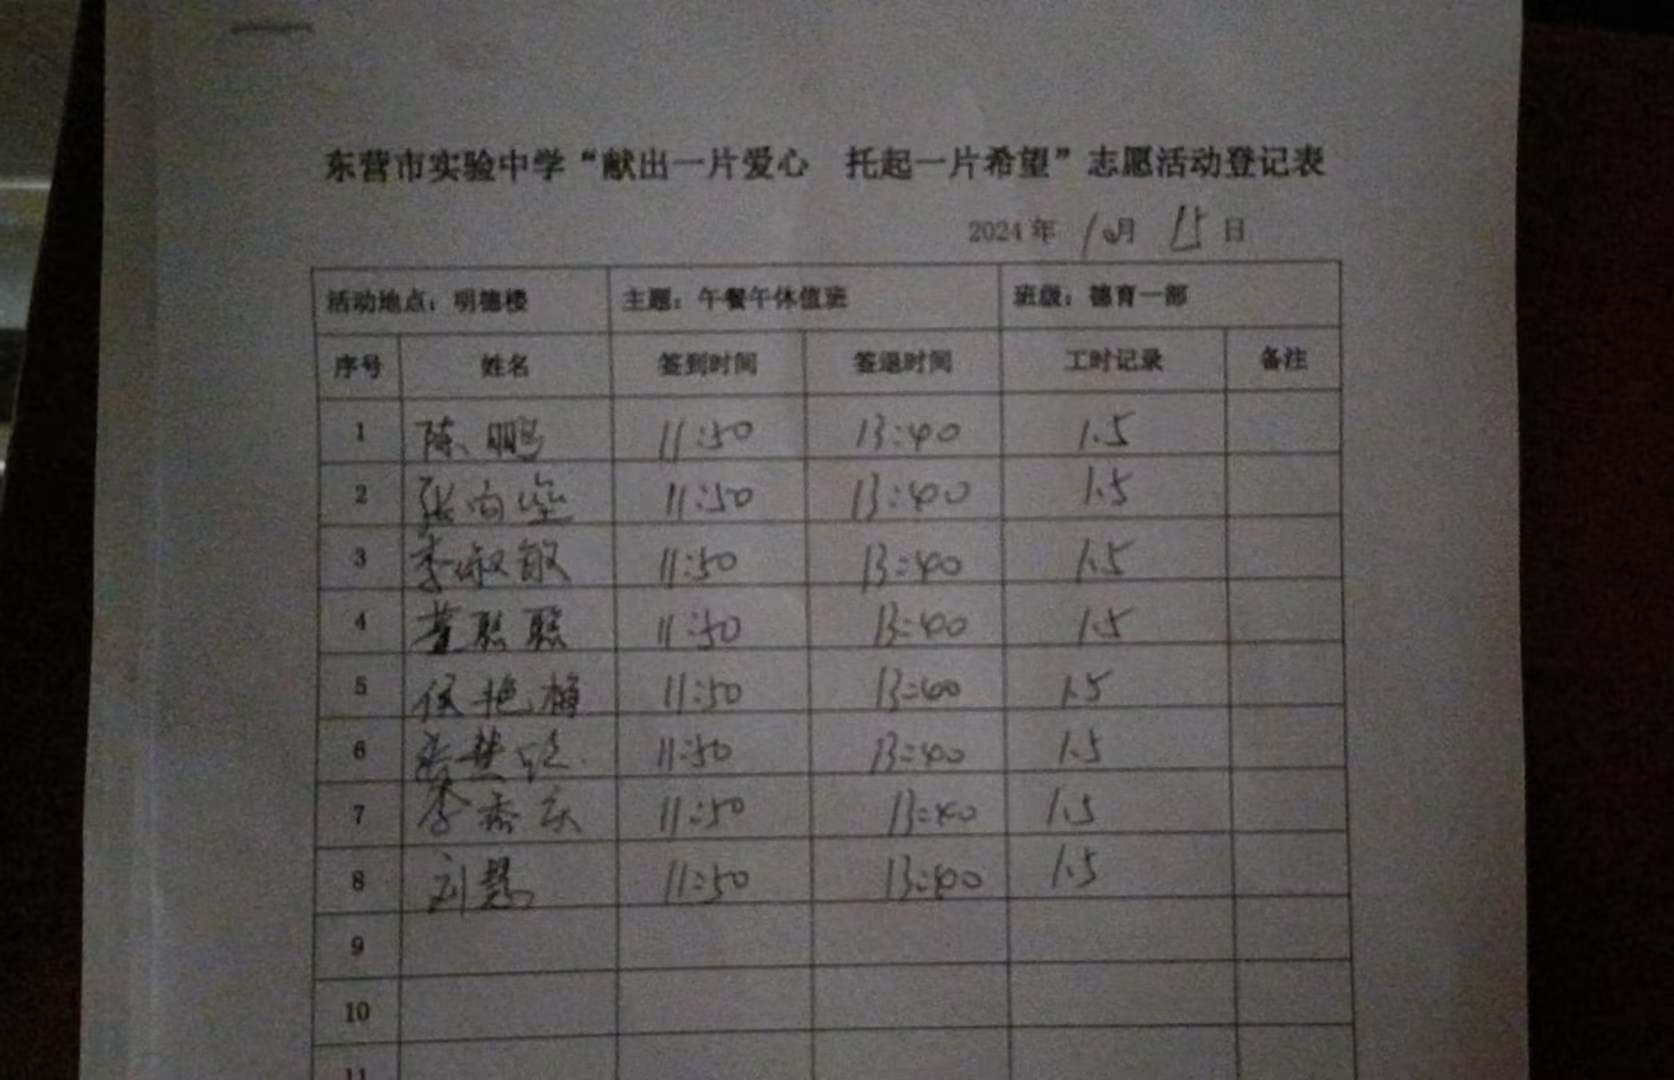 东营市实验中学“献出一片爱心 托起一片希望”志愿活动登记表
2024年 10月 15日
活动地点：明德楼 主题：午餐午休值班 班级：德育一部
序号 姓名 签到时间 签退时间 工时记录 备注
1 陈鹏 11:50 13:40 1.5
2 张向莹 11:50 13:40 1.5
3 李淑敏 11:50 13:40 1.5
4 董聪聪 11:50 13:40 1.5
5 侯艳梅 11:50 13:40 1.5
6 11:50 13:40 1.5
7 李秀庆 11:50 13:40 1.5
8 刘慧 11:50 13:40 1.5
9
10
11